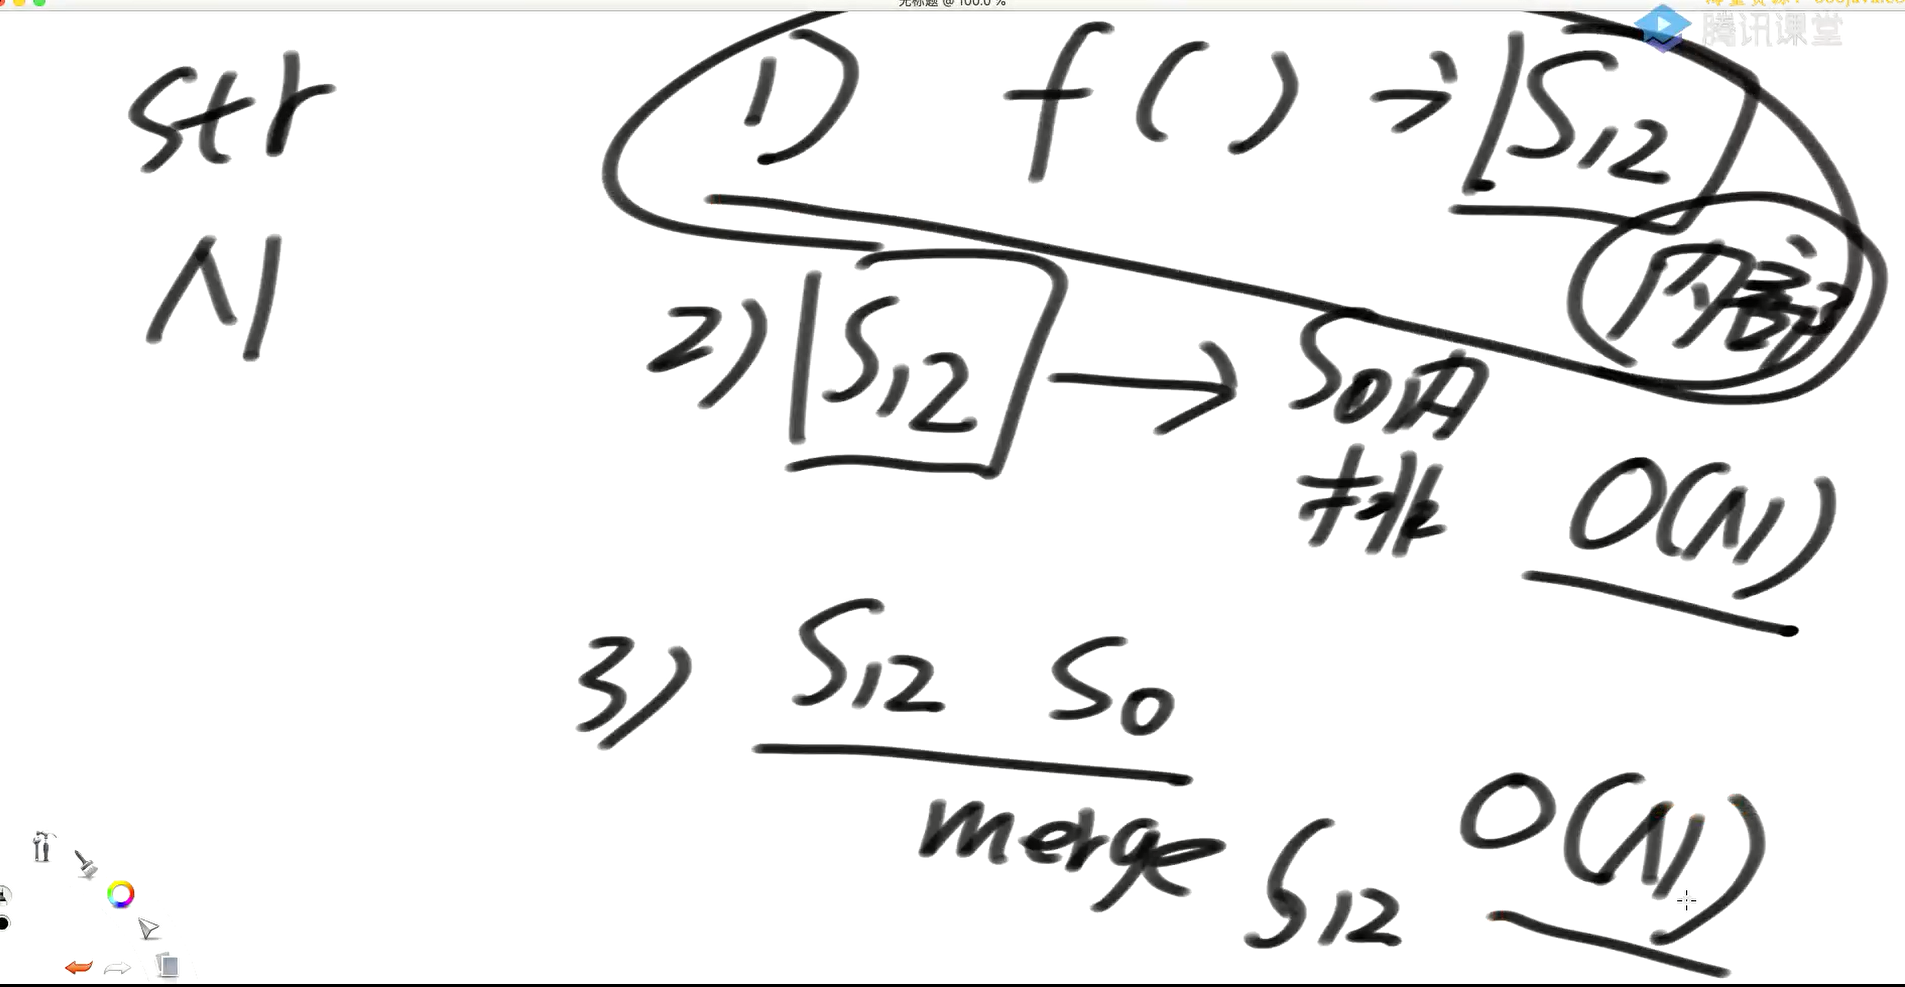 无标题 @ 100.0 %
腾讯课堂
str
N
1) f() → S12
内部
2) S12 → S0内
排
O(N)
3) S12 S0
merge S12 O(N)